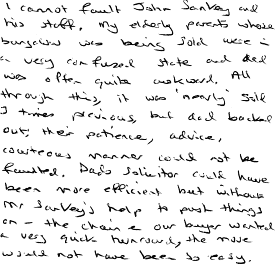 I cannot fault John Sankey and
his staff. My elderly parents whose
bungalow was being sold were in
a very confused state and dad
was often quite awkward. All
through this, it was 'nearly' sold
3 times previous, but dad backed
out, their patience, advice,
courteous manner could not be
faulted. Dads solicitor could have
been more efficient but without
Mr Sankey's help to push things
on - the chain & our buyer wanted
a very quick turnround, the move
would not have been so easy.